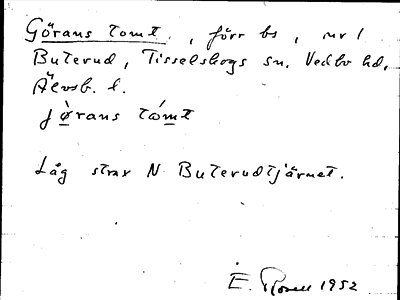 Görans tomt, förr bs, nr 1
Buterud, Tisselskogs sn. Vedbo hd,
Älvsb. l.
jø̀rans tómt
Låg strax N Buterudtjärnet.
E. 1952